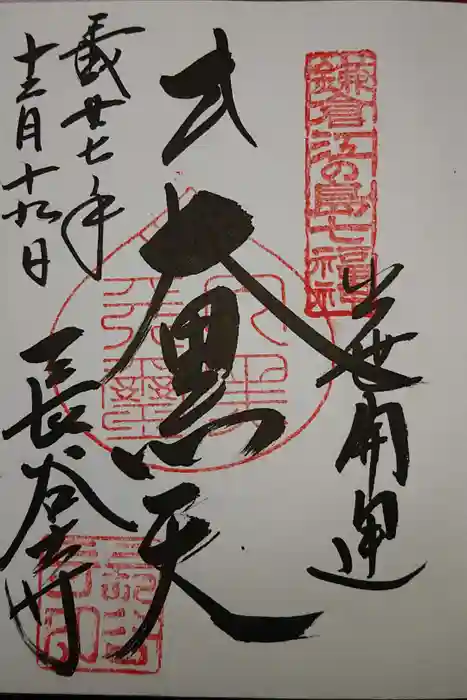 鎌倉江の島七福神
出世開運
大黒天
廿七年
十二月十九日
長谷寺